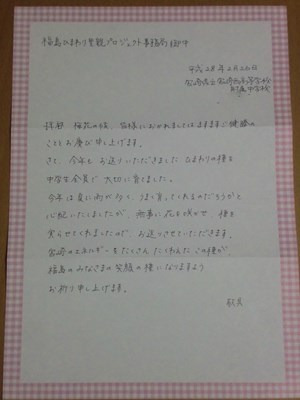 福島ひまわり里親プロジェクト事務局 御中
平成28年2月26日
宮崎県立宮崎西高等学校
附属中学校
拝啓 梅花の候、皆様におかれましてはますますご健勝の
こととお慶び申し上げます。
さて、今年もお送りいただきましたひまわりの種を
中学生全員で大切に育てました。
今年は夏に雨が多く、うまく育ってくれるのだろうかと
心配いたしましたが、無事に花を咲かせ、種を
実らせてくれましたので、お送りさせていただきます。
宮崎のエネルギーをたくさんたくわえたこの種が、
福島のみなさまの笑顔の種になりますよう
お祈り申し上げます。
敬具